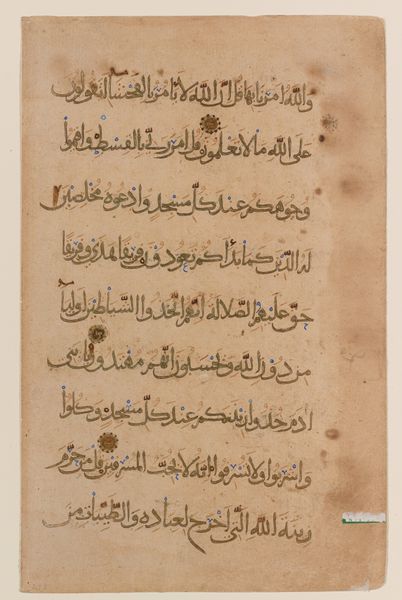 والله امرنا بها قل ان الله لا يامر بالفحشا اتقولون
على الله ما لا تعلمون قل امر ربي بالقسط واقيموا
وجوهكم عند كل مسجد وادعوه مخلصين
له الدين كما بدأكم تعودون فريقا هدى وفريقا
حق عليهم الضلالة انهم اتخذوا الشياطين اوليا
من دون الله ويحسبون انهم مهتدون يا بني
ادم خذوا زينتكم عند كل مسجد وكلوا
واشربوا ولا تسرفوا انه لا يحب المسرفين قل من حرم
زينة الله التي اخرج لعباده والطيبات من